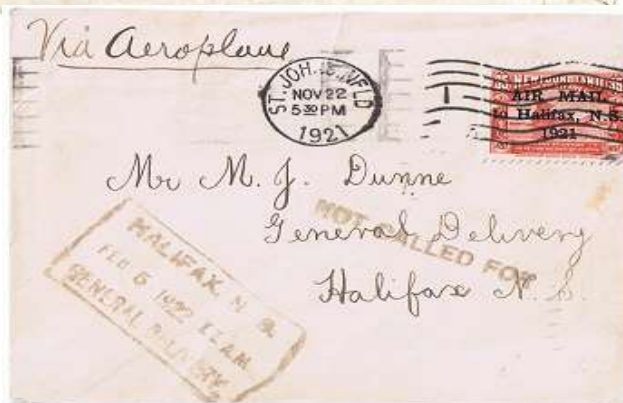 Via Aeroplane
ST. JOH NFLD
NOV 22
5 30 PM
1921
NEWFOUNDLAND
AIR MAIL
to Halifax, N.S.
1921
Mr M. J. Dunne
NOT CALLED FOR
General Delivery
Halifax N.S.
HALIFAX, N.S.
FEB 6 1922 11 AM
GENERAL DELIVERY